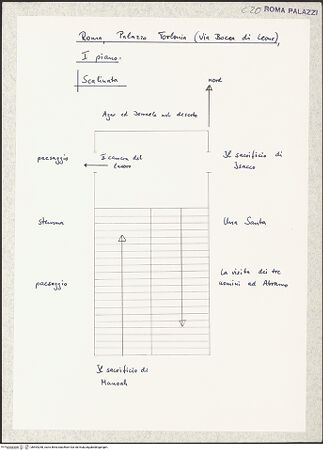 C20 ROMA PALAZZI
Roma, Palazzo Torlonia (via Bocca di Leone),
I piano.
Scalinata
nord
Agar ed Ismaele nel deserto
paesaggio
I camera del
lavoro
Il sacrificio di
Isacco
stemma
Una Santa
paesaggio
La visita dei tre
uomini ad Abramo
Il sacrificio di
Manoah